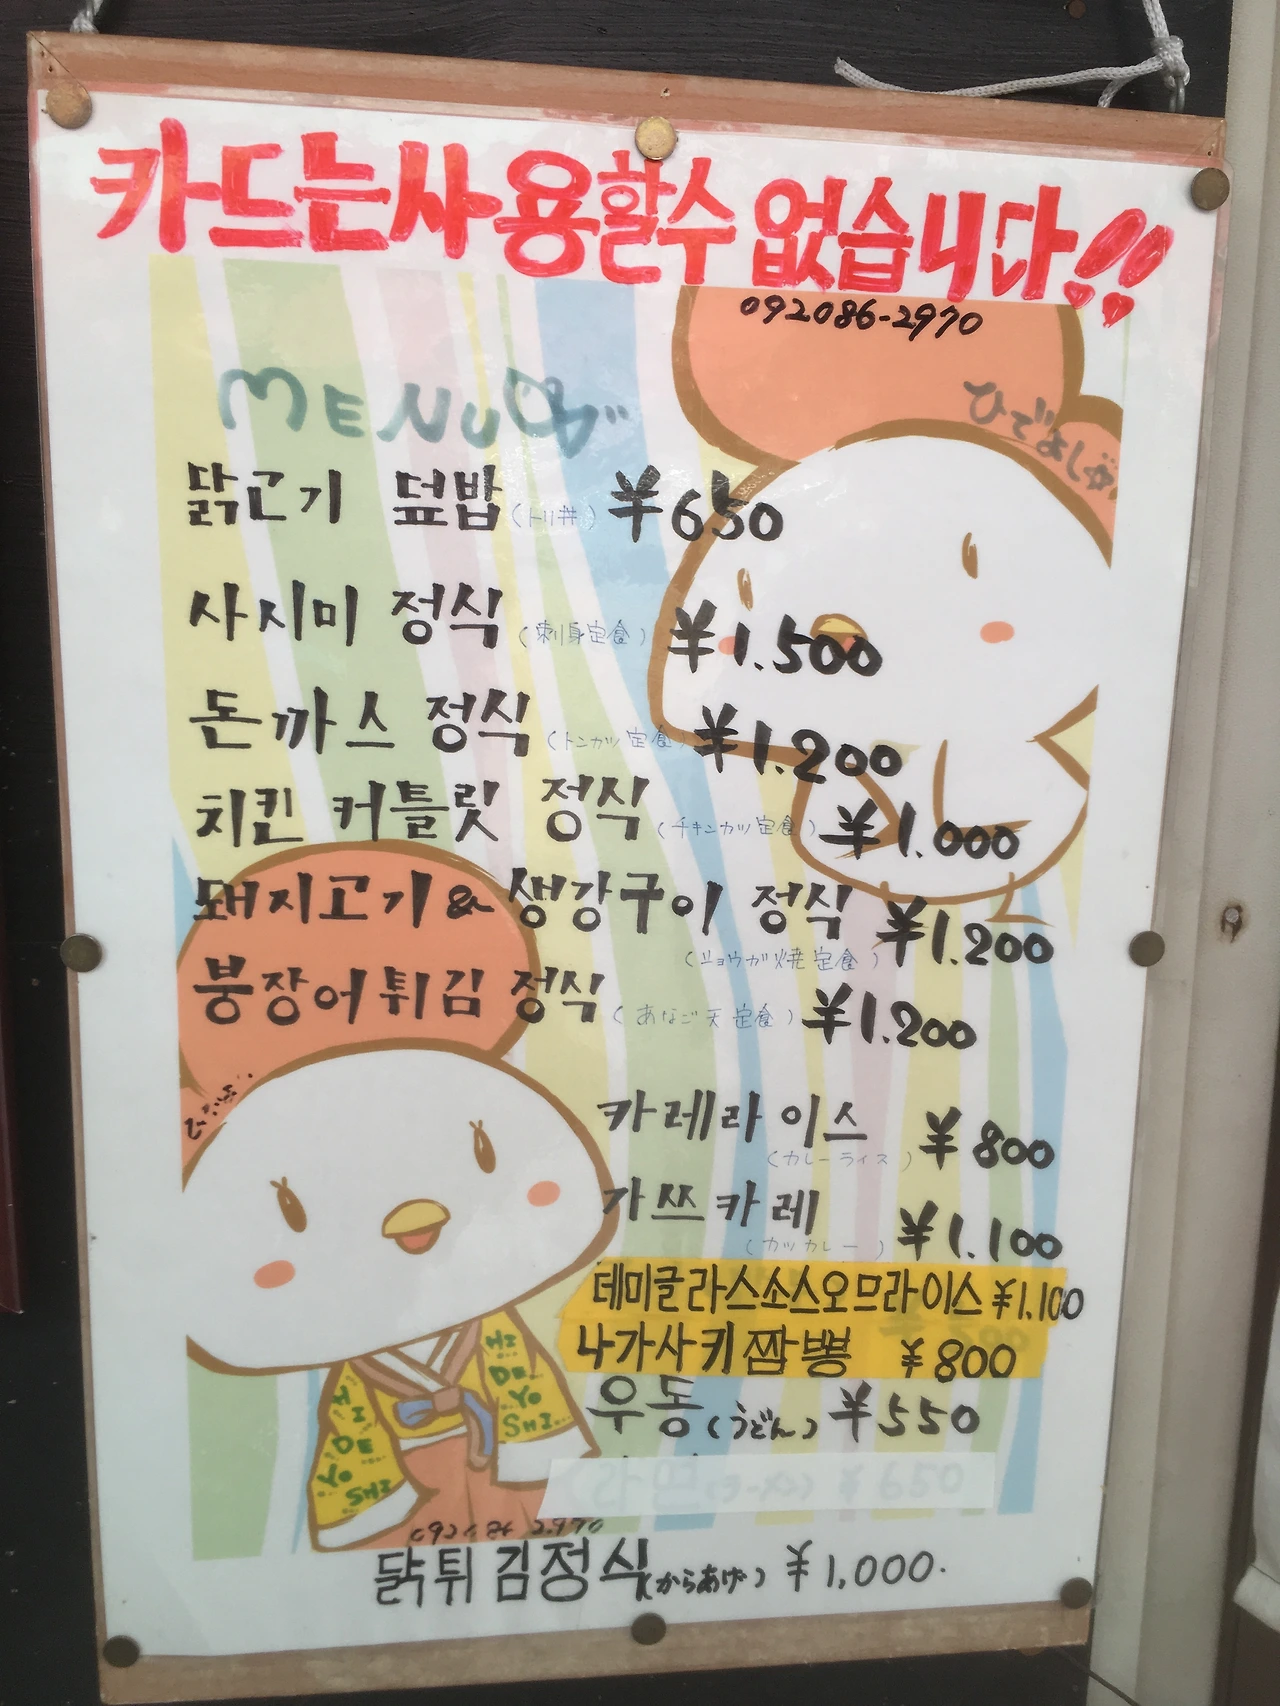 카드는사용할수 없습니다!!
092086-2970
MENU
ひでよし
닭고기 덮밥 (トリ丼) ¥650
사시미 정식 (刺身定食) ¥1.500
돈까스 정식 (トンカツ定食) ¥1.200
치킨 커틀릿 정식 (チキンカツ定食) ¥1.000
돼지고기 & 생강구이 정식 ¥1.200
(ショウガ焼定食)
붕장어튀김 정식 (あなご天定食) ¥1.200
카레라이스 ¥800
(カレーライス)
가쯔카레 ¥1.100
(カツカレー)
데미글라스소스오므라이스 ¥1.100
나가사키짬뽕 ¥800
우동 (うどん) ¥550
라면 (ラーメン) ¥650
HI DE YO SHI
HI DE YO SHI
닭튀김정식 (からあげ) ¥1,000.